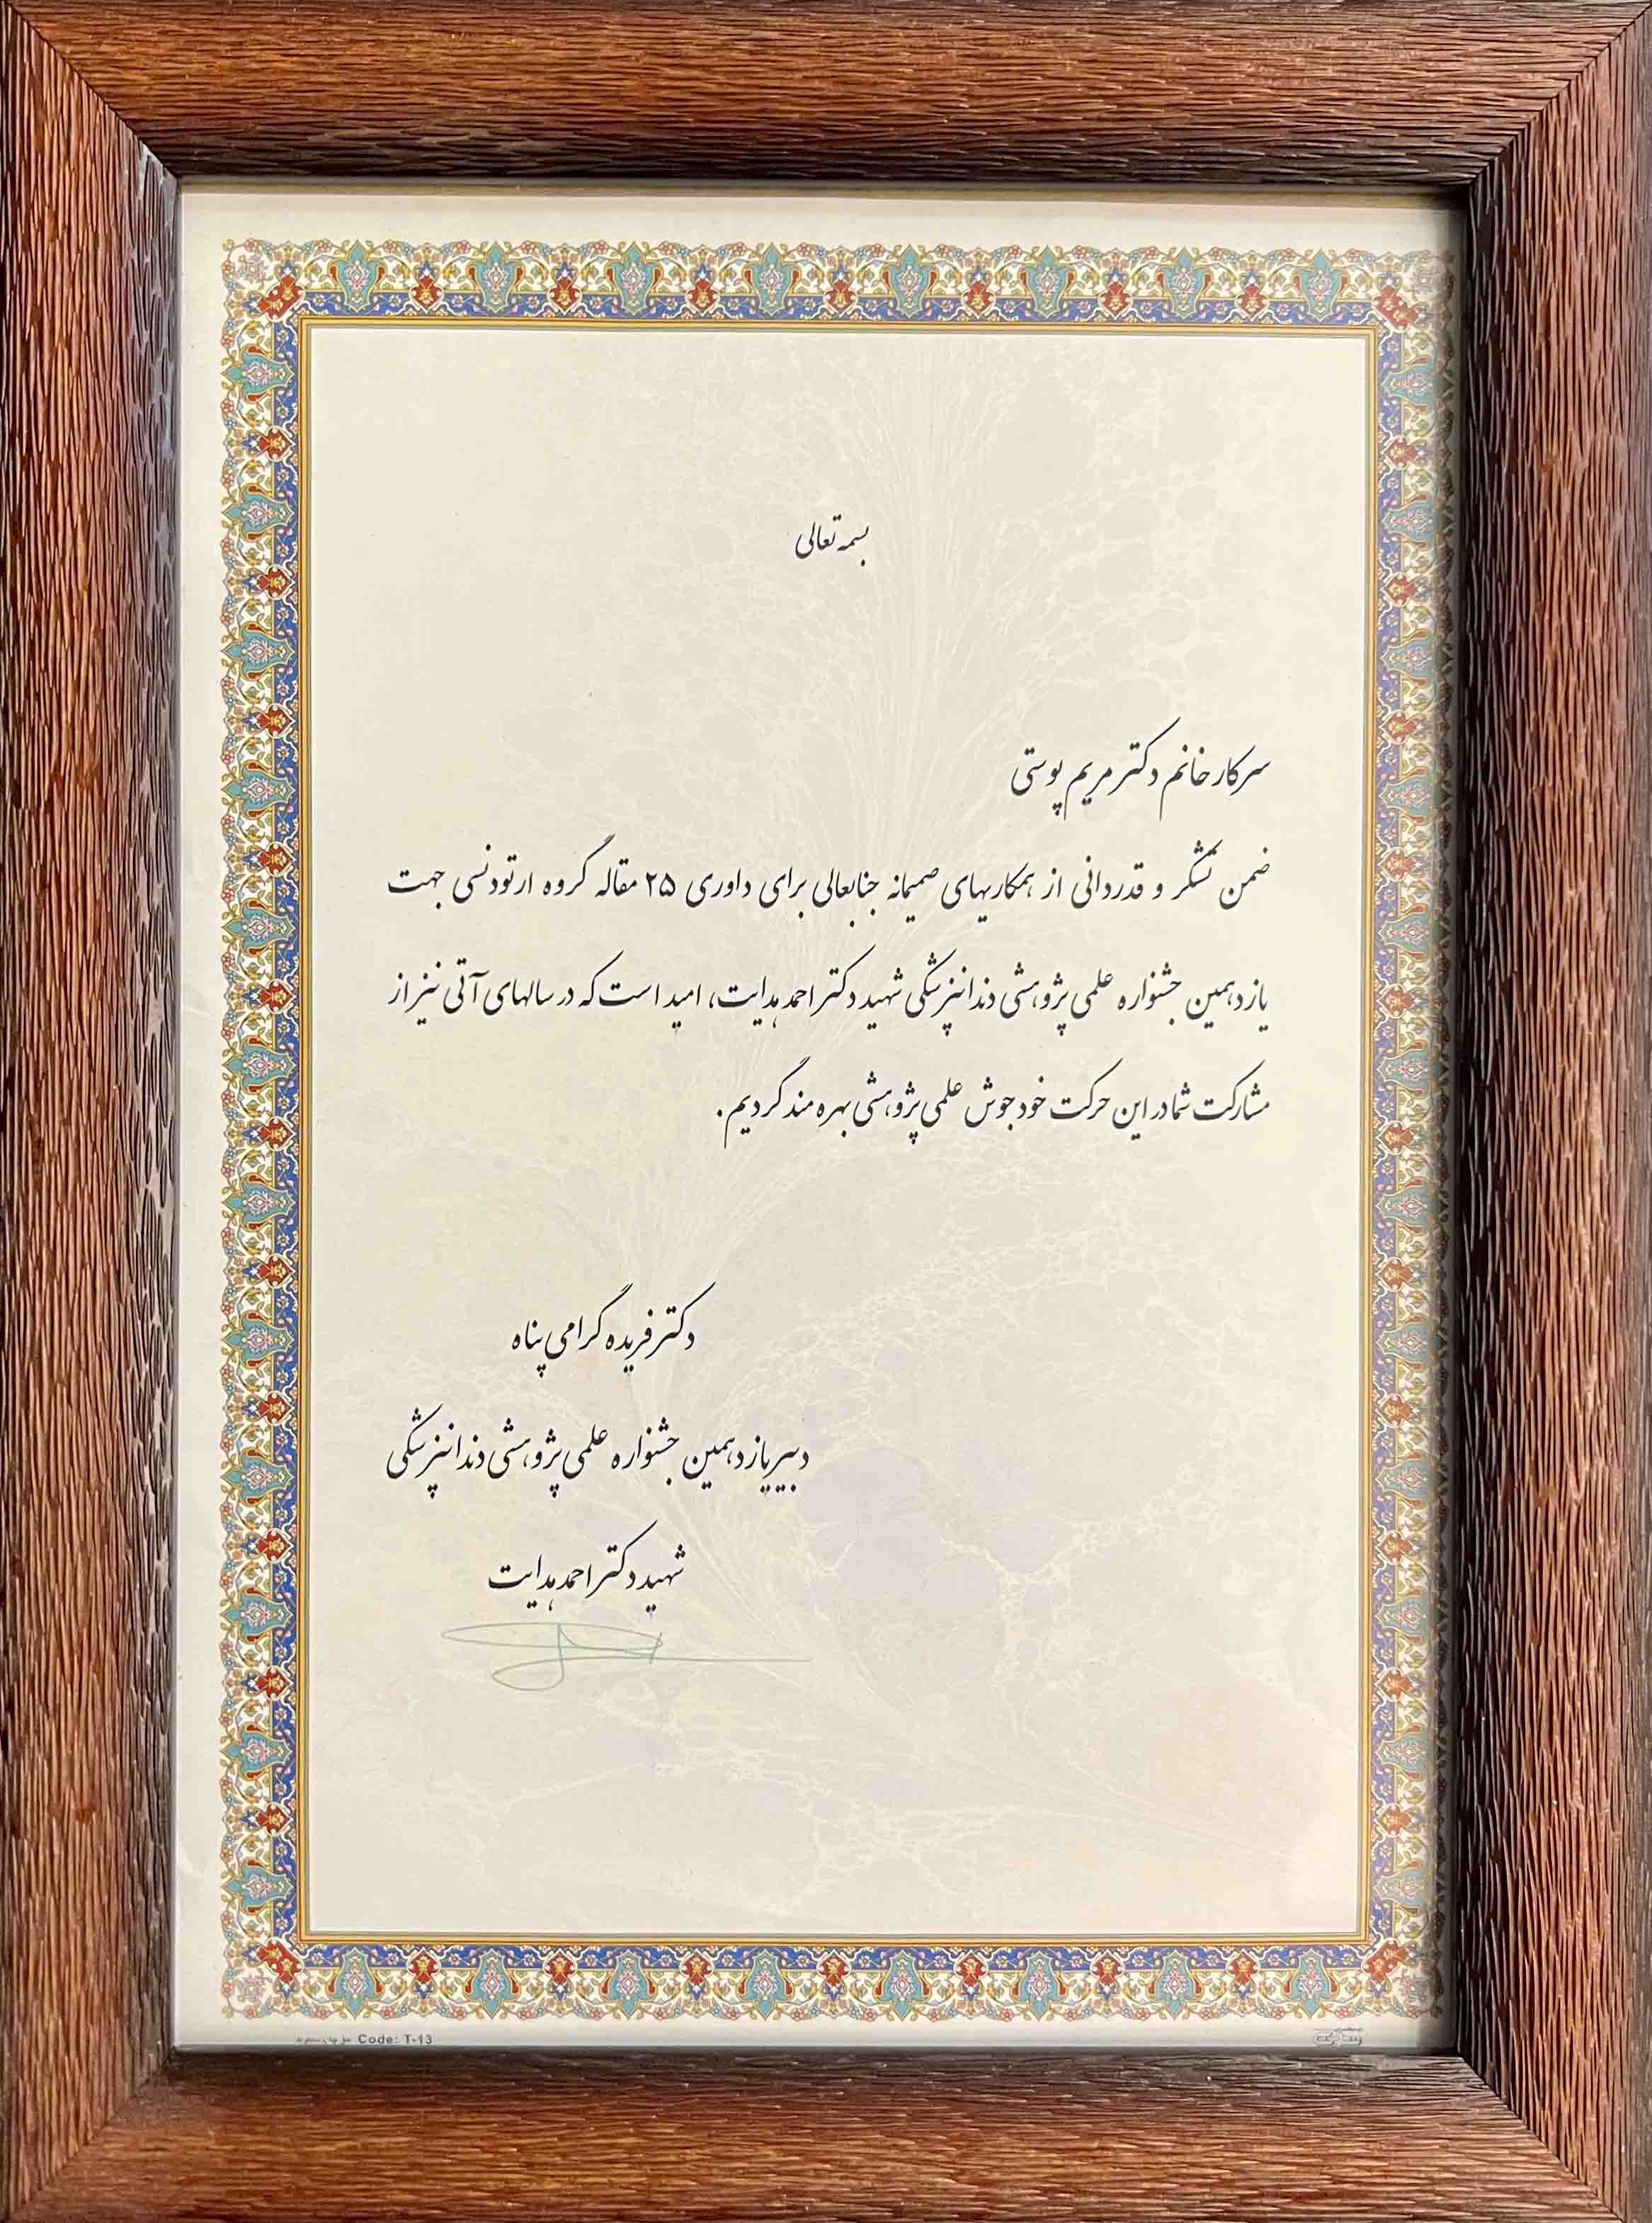 بسمه تعالی
سرکار خانم دکتر مریم پوستی
ضمن تشکر و قدردانی از همکاریهای صمیمانه جنابعالی برای داوری ۲۵ مقاله گروه ارتودنسی جهت
یازدهمین جشنواره علمی پژوهشی دندانپزشکی شهید دکتر احمد هدایت، امید است که در سالهای آتی نیز از
مشارکت شما در این حرکت خودجوش علمی پژوهشی بهره مند گردیم.
دکتر فریده گرامی پناه
دبیر یازدهمین جشنواره علمی پژوهشی دندانپزشکی
شهید دکتر احمد هدایت
Code: T-13